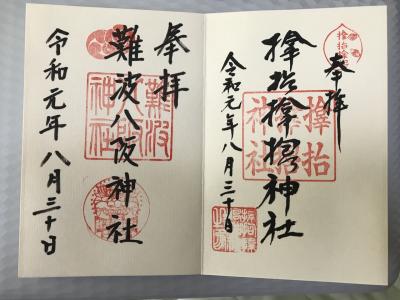 奉拝
𪮷抬𪮷𫝼神社
𪮷抬
𪮷𫝼
神社
令和元年八月三十日
奉拝
難波八阪神社
難波
八阪
神社
令和元年八月三十日